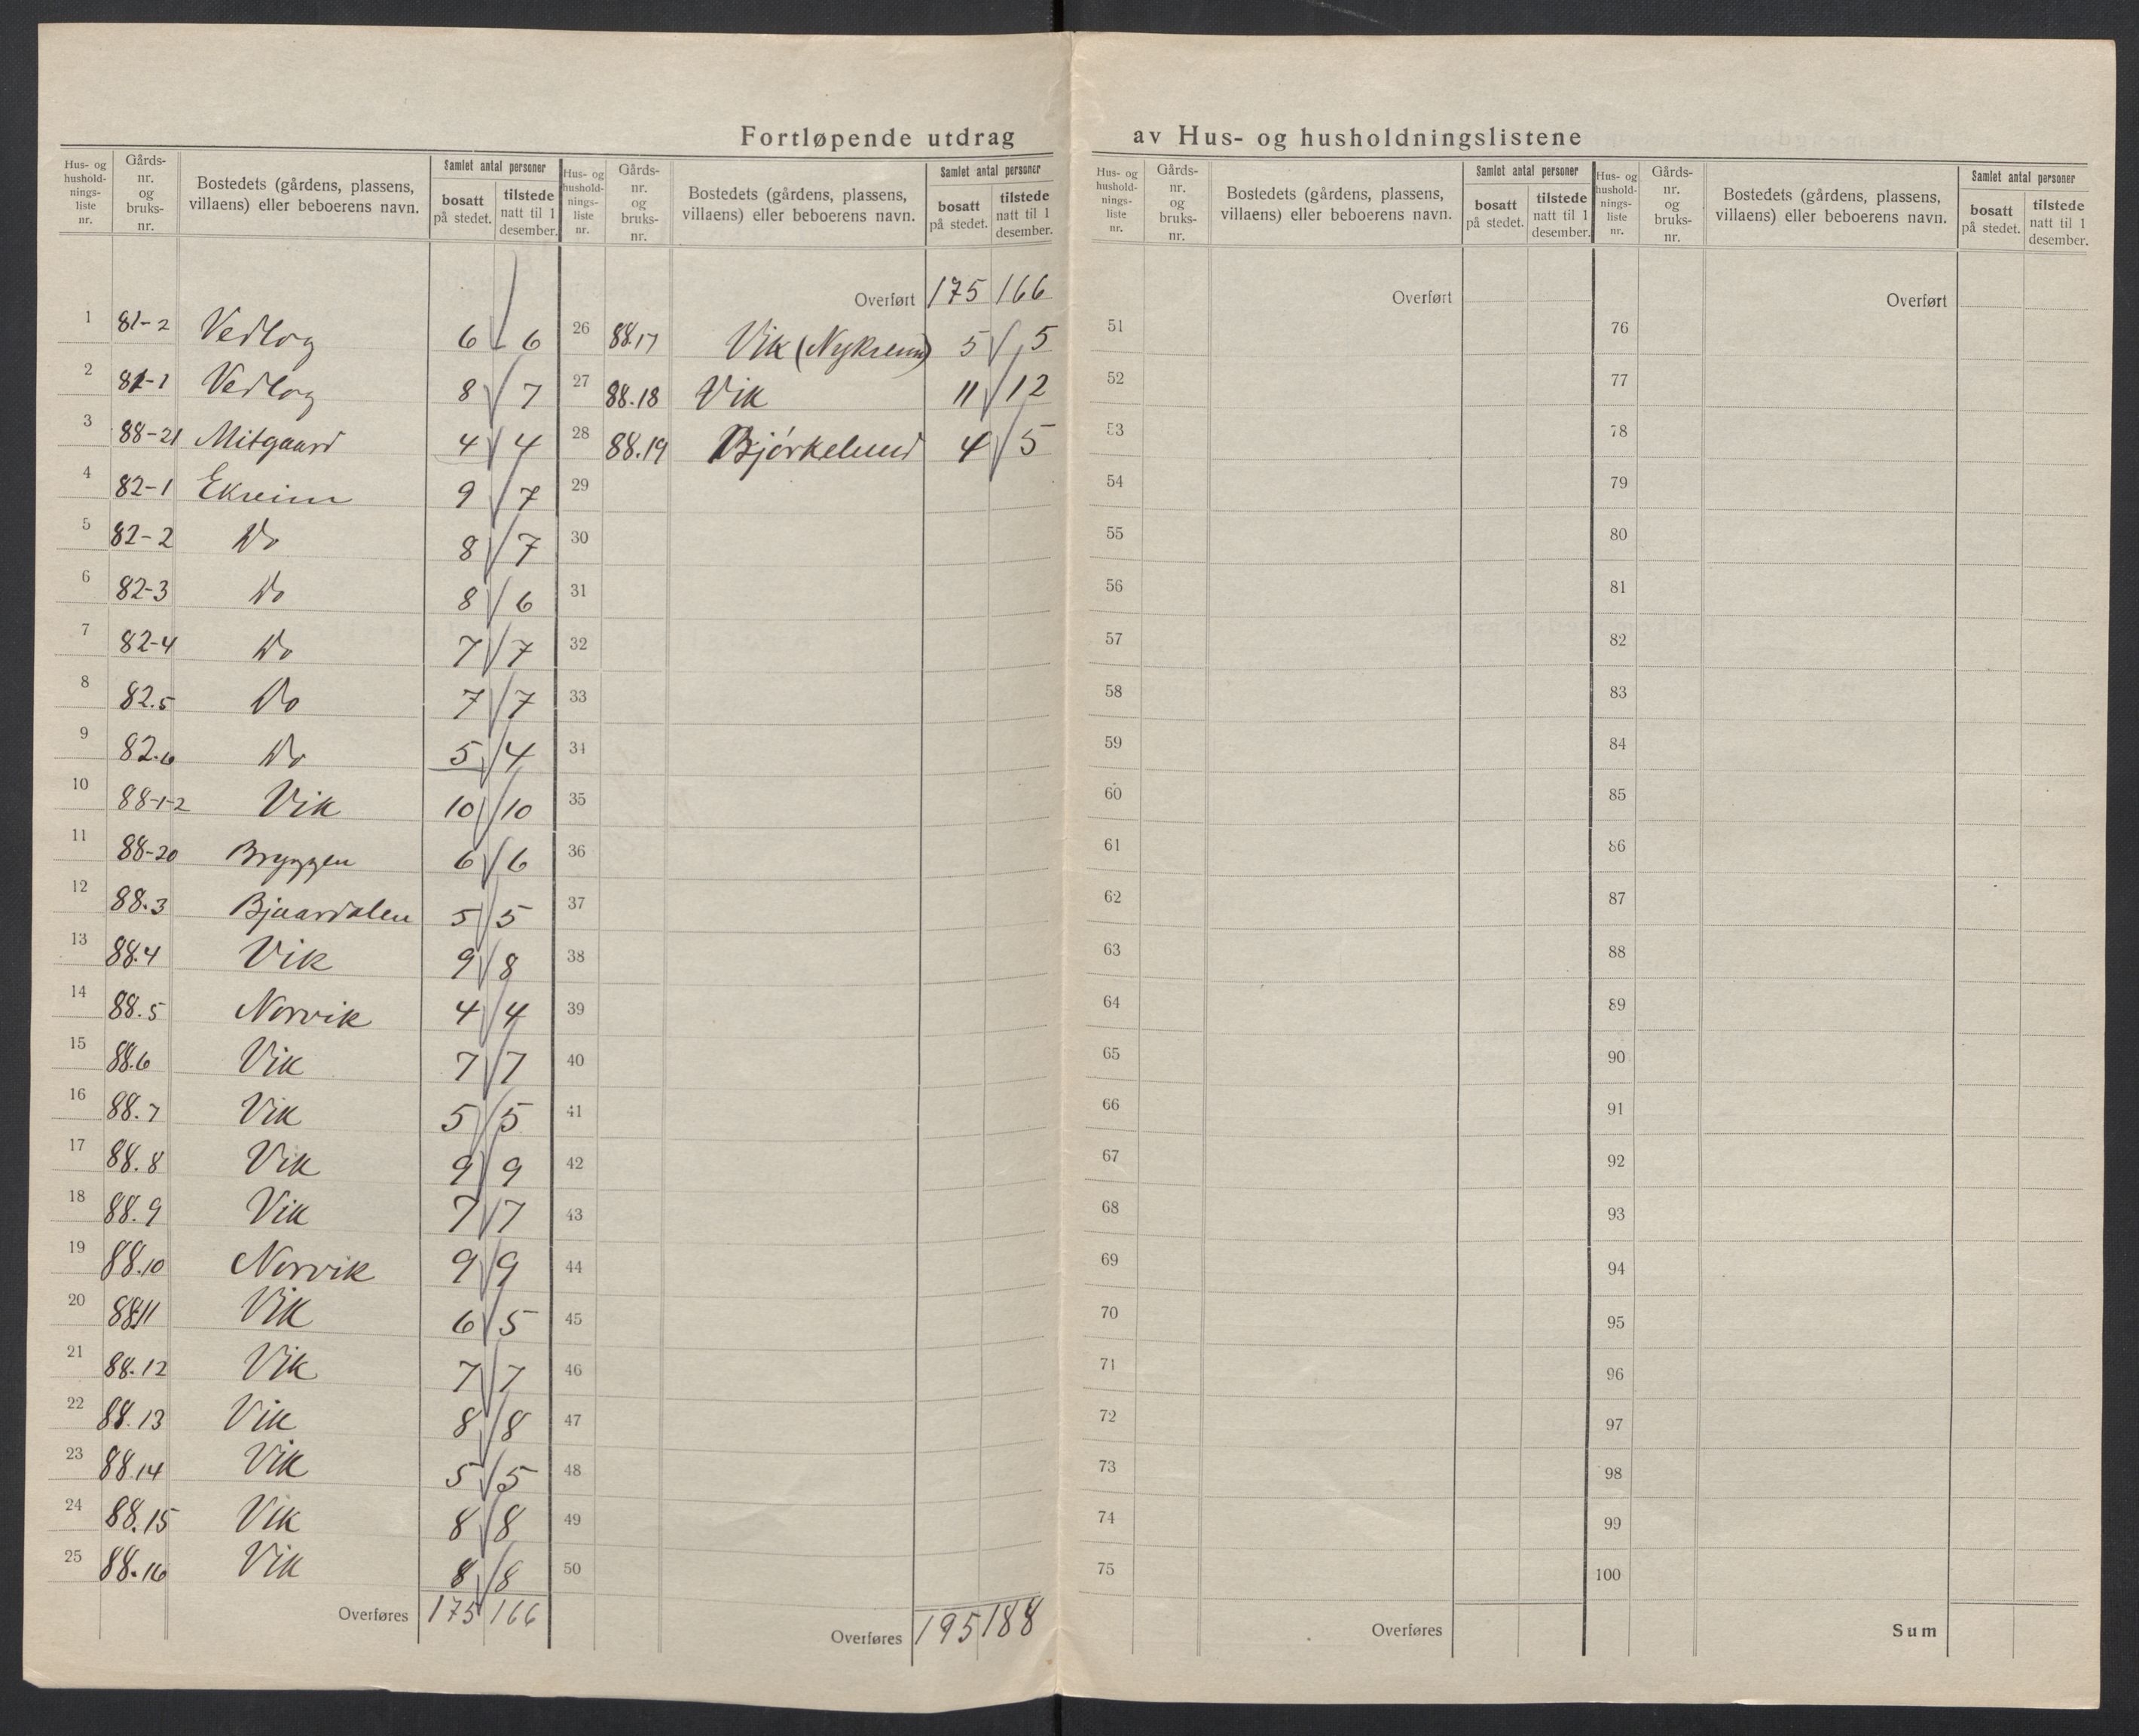 Fortløpende utdrag av Hus- og husholdningslistene
Hus- og hushold-nings-liste nr. Gårds-nr. og bruks-nr. Bostedets (gårdens, plassens, villaens) eller beboerens navn. Samlet antal personer bosatt på stedet. tilstede natt til 1 desember.
1 81-2 Vedlog 6 6
2 81-1 Vedlog 8 7
3 88-21 Mitgaard 4 4
4 82-1 Ekreim 9 7
5 82-2 Do 8 7
6 82-3 Do 8 6
7 82-4 Do 7 7
8 82.5 Do 7 7
9 82.6 Do 5 4
10 88-1-2 Vik 10 10
11 88-20 Bryggen 6 6
12 88.3 Bjaardalen 5 5
13 88.4 Vik 9 8
14 88.5 Norvik 4 4
15 88.6 Vik 7 7
16 88.7 Vik 5 5
17 88.8 Vik 9 9
18 88.9 Vik 7 7
19 88.10 Norvik 9 9
20 88.11 Vik 6 5
21 88.12 Vik 7 7
22 88.13 Vik 8 8
23 88.14 Vik 5 5
24 88.15 Vik 8 8
25 88.16 Vik 8 8
Overføres 175 166
Hus- og hushold-nings-liste nr. Gårds-nr. og bruks-nr. Bostedets (gårdens, plassens, villaens) eller beboerens navn. Samlet antal personer bosatt på stedet. tilstede natt til 1 desember.
Overført 175 166
26 88.17 Vik 5 5
27 88.18 Vik 11 12
28 88.19 Bjørkelund 4 5
29
30
31
32
33
34
35
36
37
38
39
40
41
42
43
44
45
46
47
48
49
50
Overføres 195 188
Hus- og hushold-nings-liste nr. Gårds-nr. og bruks-nr. Bostedets (gårdens, plassens, villaens) eller beboerens navn. Samlet antal personer bosatt på stedet. tilstede natt til 1 desember.
Overført
51
52
53
54
55
56
57
58
59
60
61
62
63
64
65
66
67
68
69
70
71
72
73
74
75
Overføres
Hus- og hushold-nings-liste nr. Gårds-nr. og bruks-nr. Bostedets (gårdens, plassens, villaens) eller beboerens navn. Samlet antal personer bosatt på stedet. tilstede natt til 1 desember.
Overført
76
77
78
79
80
81
82
83
84
85
86
87
88
89
90
91
92
93
94
95
96
97
98
99
100
Sum